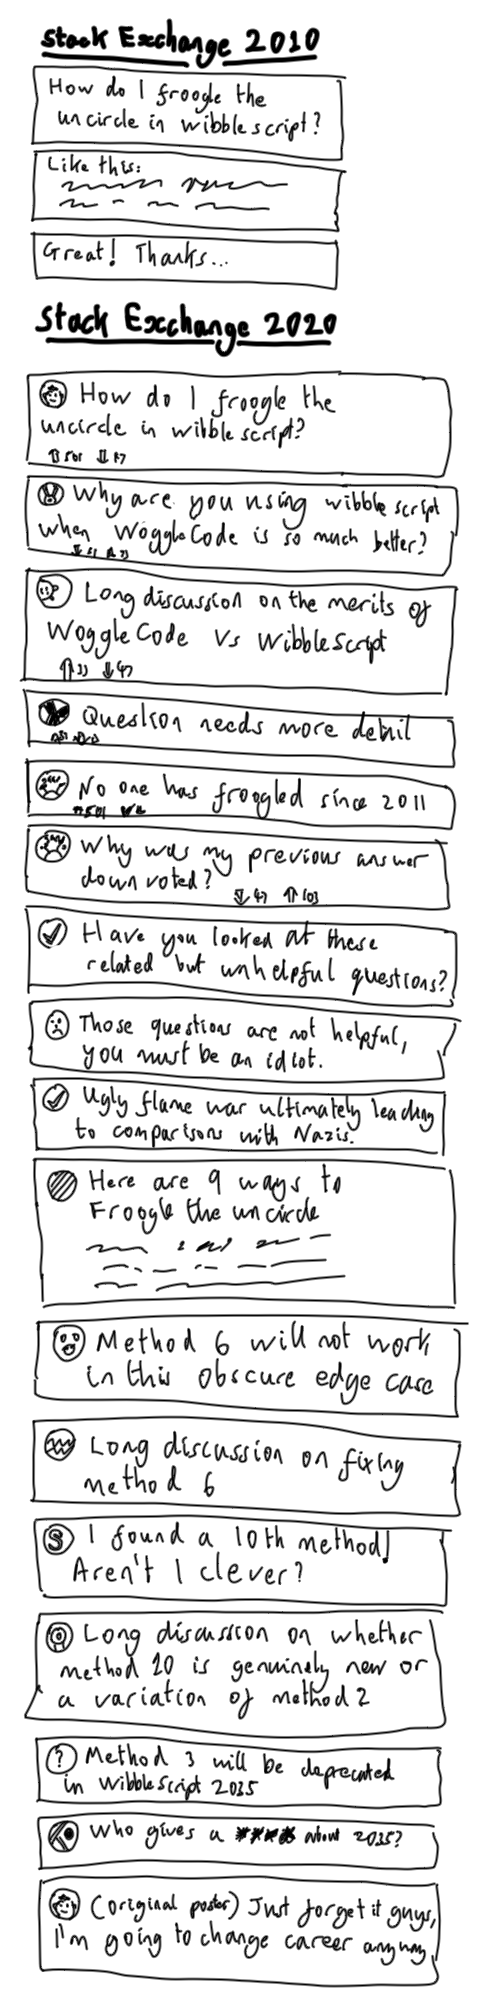 Stack Exchange 2010
How do I froogle the
uncircle in wibble script?
Like this:
Great! Thanks...
Stack Exchange 2020
How do I froogle the
uncircle in wibble script?
Why are you using wibble script
when WoggleCode is so much better?
Long discussion on the merits of
WoggleCode Vs WibbleScript
Question needs more detail
No one has froogled since 2011
Why was my previous answer
down voted?
Have you looked at these
related but unhelpful questions?
Those questions are not helpful,
you must be an idiot.
Ugly flame war ultimately leading
to comparisons with Nazis.
Here are 9 ways to
Froogle the uncircle
Method 6 will not work
in this obscure edge case
Long discussion on fixing
method 6
I found a 10th method!
Aren't I clever?
Long discussion on whether
method 10 is genuinely new or
a variation of method 2
Method 3 will be deprecated
in WibbleScript 2035
Who gives a **** about 2035?
(original poster) Just forget it guys,
I'm going to change career anyway